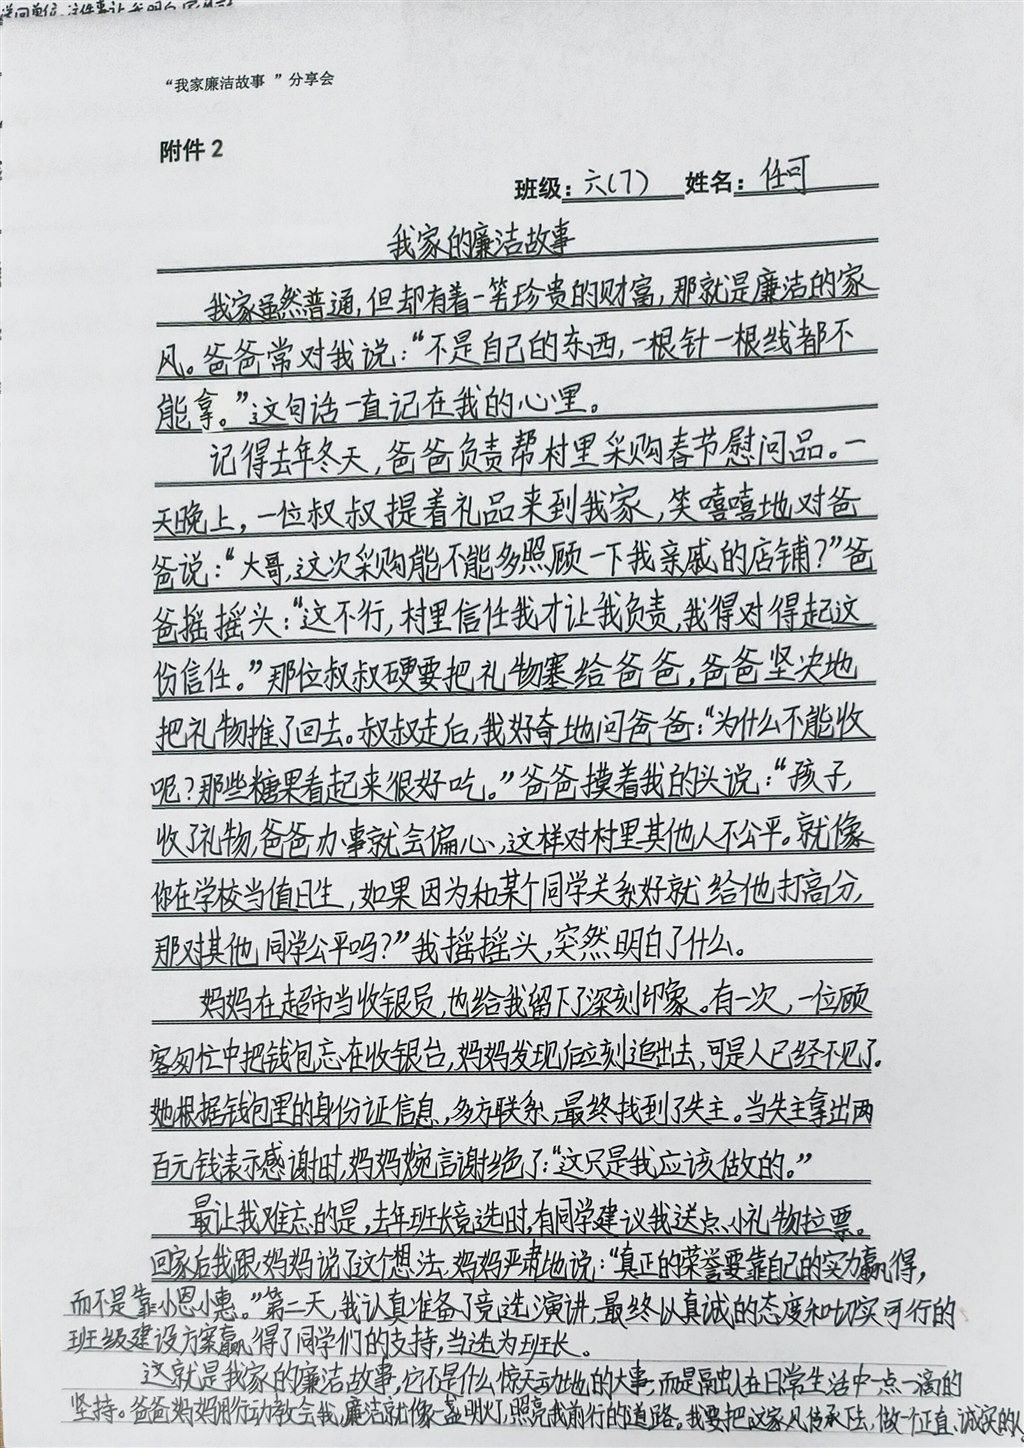 “我家廉洁故事 ”分享会
附件 2
班级：六(7) 姓名：任可
我家的廉洁故事
我家虽然普通，但却有着一笔珍贵的财富，那就是廉洁的家
风。爸爸常对我说：“不是自己的东西，一根针一根线都不
能拿。”这句话一直记在我的心里。
记得去年冬天，爸爸负责帮村里采购春节慰问品。一
天晚上，一位叔叔提着礼品来到我家，笑嘻嘻地对爸
爸说：“大哥，这次采购能不能多照顾一下我亲戚的店铺？”爸
爸摇摇头：“这不行，村里信任我才让我负责，我得对得起这
份信任。”那位叔叔硬要把礼物塞给爸爸，爸爸坚决地
把礼物推了回去。叔叔走后，我好奇地问爸爸：“为什么不能收
呢？那些糖果看起来很好吃。”爸爸摸着我的头说：“孩子，
收了礼物，爸爸办事就会偏心，这样对村里其他人不公平。就像
你在学校当值日生，如果因为和某个同学关系好就给他打高分，
那对其他同学公平吗？”我摇摇头，突然明白了什么。
妈妈在超市当收银员，也给我留下了深刻印象。有一次，一位顾
客匆忙中把钱包忘在收银台，妈妈发现后立刻追出去，可是人已经不见了。
她根据钱包里的身份证信息，多方联系，最终找到了失主。当失主拿出两
百元钱表示感谢时，妈妈婉言谢绝了：“这只是我应该做的。”
最让我难忘的是，去年班长竞选时，有同学建议我送点小礼物拉票。
回家后我跟妈妈说了这个想法，妈妈严肃地说：“真正的荣誉要靠自己的实力赢得，
而不是靠小恩小惠。”第二天，我认真准备了竞选演讲，最终以真诚的态度和切实可行的
班级建设方案赢得了同学们的支持，当选为班长。
这就是我家的廉洁故事，它不是什么惊天动地的大事，而是融入在日常生活中一点一滴的
坚持。爸爸妈妈用行动教会我，廉洁就像一盏明灯，照亮我前行的道路。我要把这家风传承下去，做一个正直、诚实的人